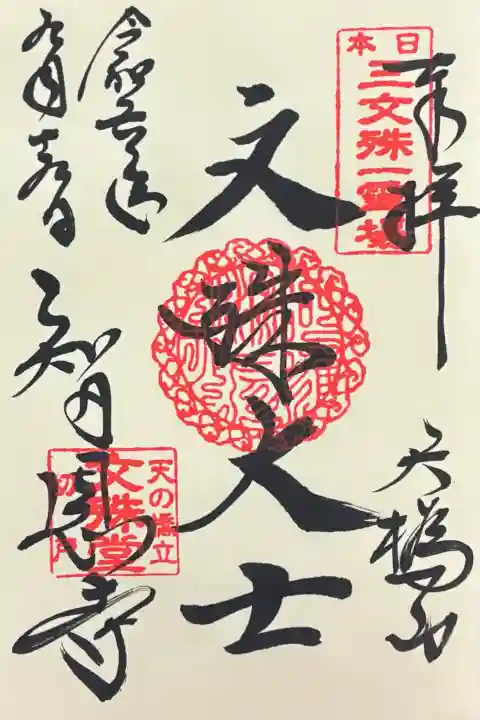 奉拝
日本
三文殊一霊場
天橋山
文殊大士
令和六年
九月日
智恩寺
天の橋立
文殊堂
切戸